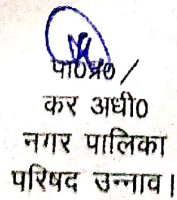 पा०प्र०/
कर अधी०
नगर पालिका
परिषद उन्नाव।